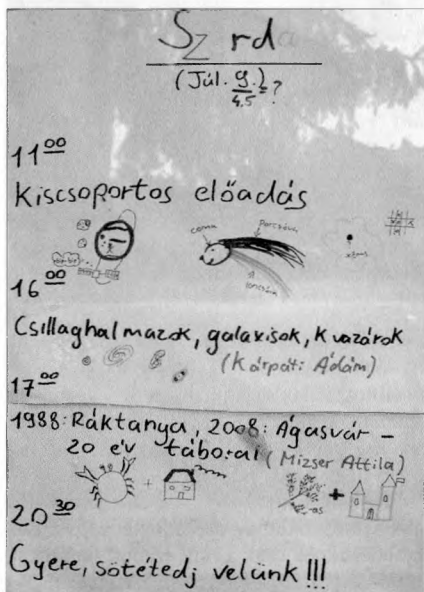 Sz rda
(Júl. 9.)=?
4.5
11 00
Kiscsoportos előadás
coma
Porcsóva
Ioncsóva
16 00
Csillaghalmazok, galaxisok, kvazárok
(Kárpáti Ádám)
17 00
1988: Ráktanya, 2008: Ágasvár –
20 év táborai (Mizser Attila)
+
-as
+
20 30
Gyere, sötétedj velünk!!!